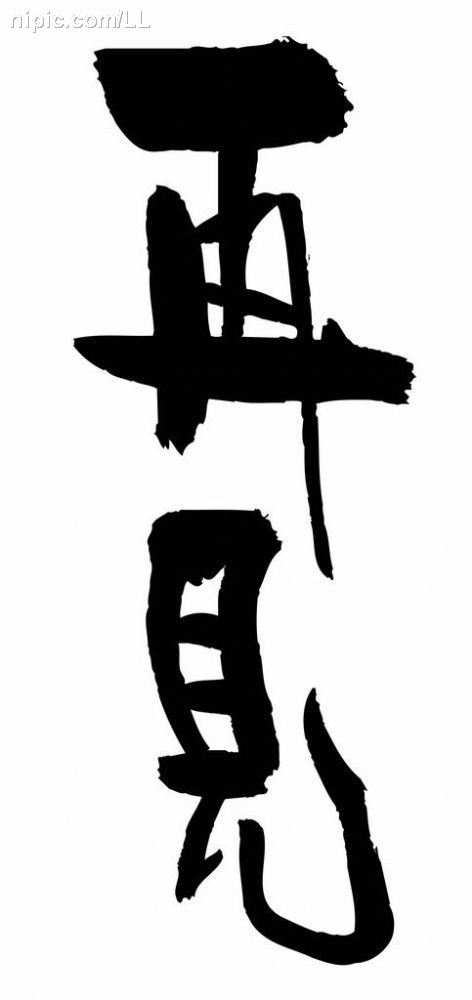 nipic.com/LL
再
見